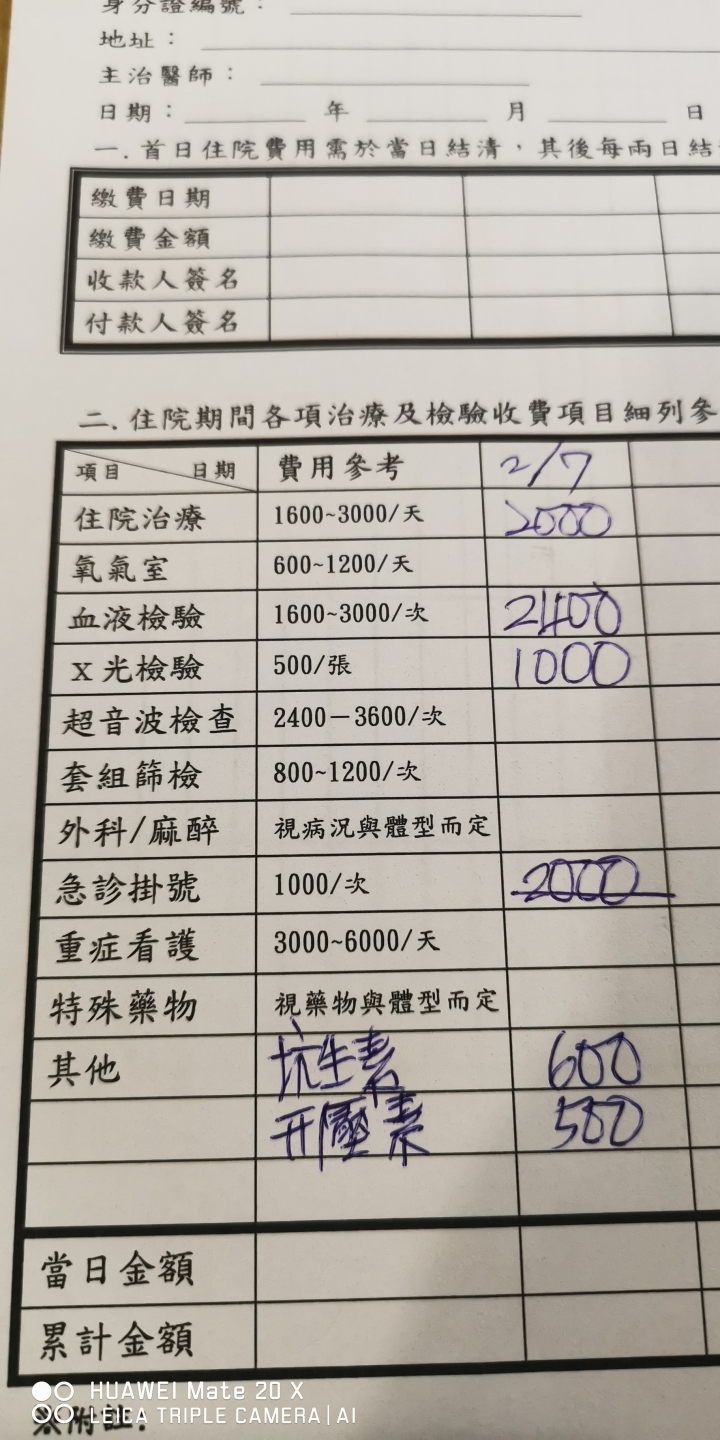 身分證編號：
地址：
主治醫師：
日期： 年 月 日
一. 首日住院費用需於當日結清，其後每兩日結
繳費日期
繳費金額
收款人簽名
付款人簽名
二. 住院期間各項治療及檢驗收費項目細列參
項目 日期 費用參考 2/7
住院治療 1600~3000/天 2000
氧氣室 600~1200/天
血液檢驗 1600~3000/次 2400
X光檢驗 500/張 1000
超音波檢查 2400－3600/次
套組篩檢 800~1200/次
外科/麻醉 視病況與體型而定
急診掛號 1000/次 2000
重症看護 3000~6000/天
特殊藥物 視藥物與體型而定
其他 抗生素 600
升壓素 500
當日金額
累計金額
※附註：
HUAWEI Mate 20 X
LEICA TRIPLE CAMERA | AI